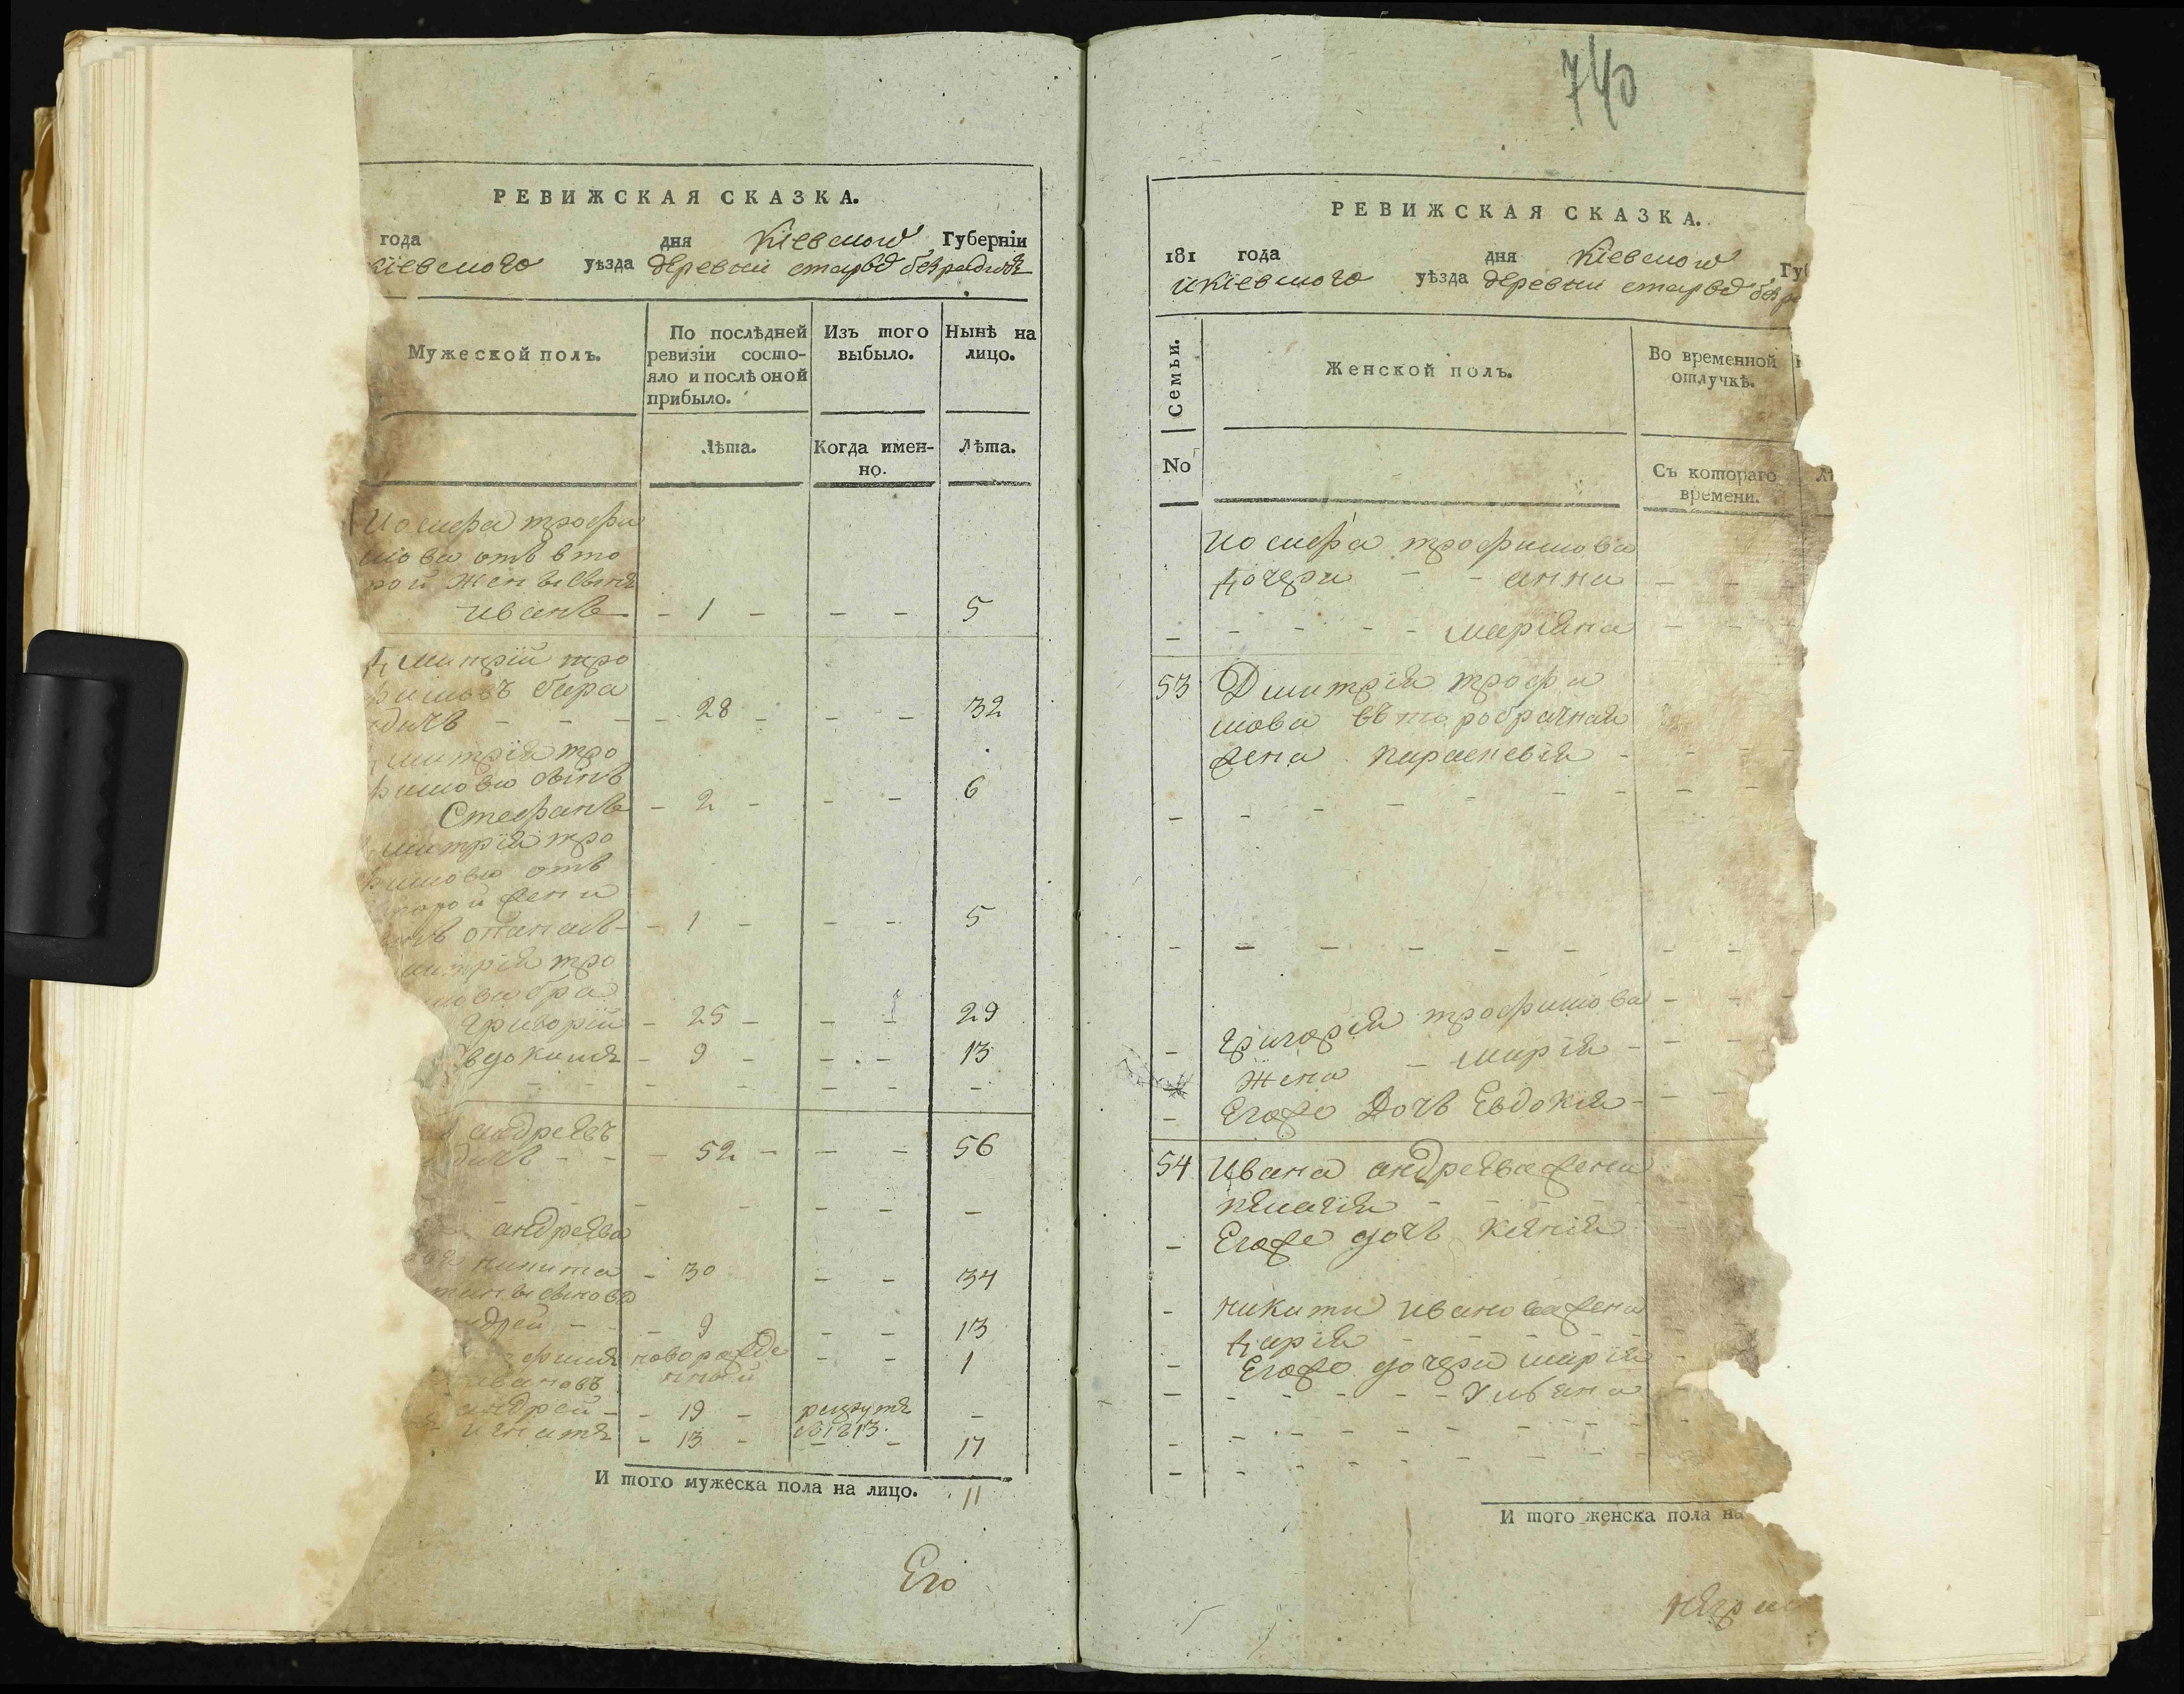 РЕВИЖСКАЯ СКАЗКА.
года дня Кіевской Губерніи
кіевского уѣзда деревни старой безрадичъ
Мужеской полъ.
По послѣдней ревизіи состо-
яло и послѣ оной прибыло.
Изъ того выбыло.
Нынѣ на лицо.
Лѣта.
Когда имен-
но.
Лѣта.
Иосифа трофи
мова отъ вто
рой жены сынъ
иванъ - 1 - - - 5
Дмитрій тро
28 - - - 32
митрія тро
фимова сынъ
Стефанъ - 2 - - - 6
митрія тро
фимова отъ
жени
1 - - - 5
митрія тро
мова бра
Григорій - 25 - - - 29
вдокимъ - 9 - - - 13
андреевъ
52 - - - 56
андреева
никита - 30 - - 34
сынова
дрей - - 9 - - 13
новорожде - - 1
ивановъ нный
андрей - - 19 - рекрутъ -
въ 1813.
игнатъ - 13 - - - 17
И того мужеска пола на лицо. 11
Его
740
РЕВИЖСКАЯ СКАЗКА.
181 года дня Кіевской Гу
Кіевского уѣзда деревни старой безра
Семьи.
Женской полъ.
Во временной отлучкѣ.
No
Съ котораго времени.
Иосифа трофимова
дочери - - анна - -
- - - - - маріяна - -
53 Дмитрія трофи
мова второбрачная
жена параскевія -
Григорія трофимова - -
жена - марія - -
Егоже Дочь Евдокія -
54 Ивана андреева жена
Егоже дочь
Никити иванова жена
дарія
Егоже дочери марія
- - - - - уліяна
И того женска пола на